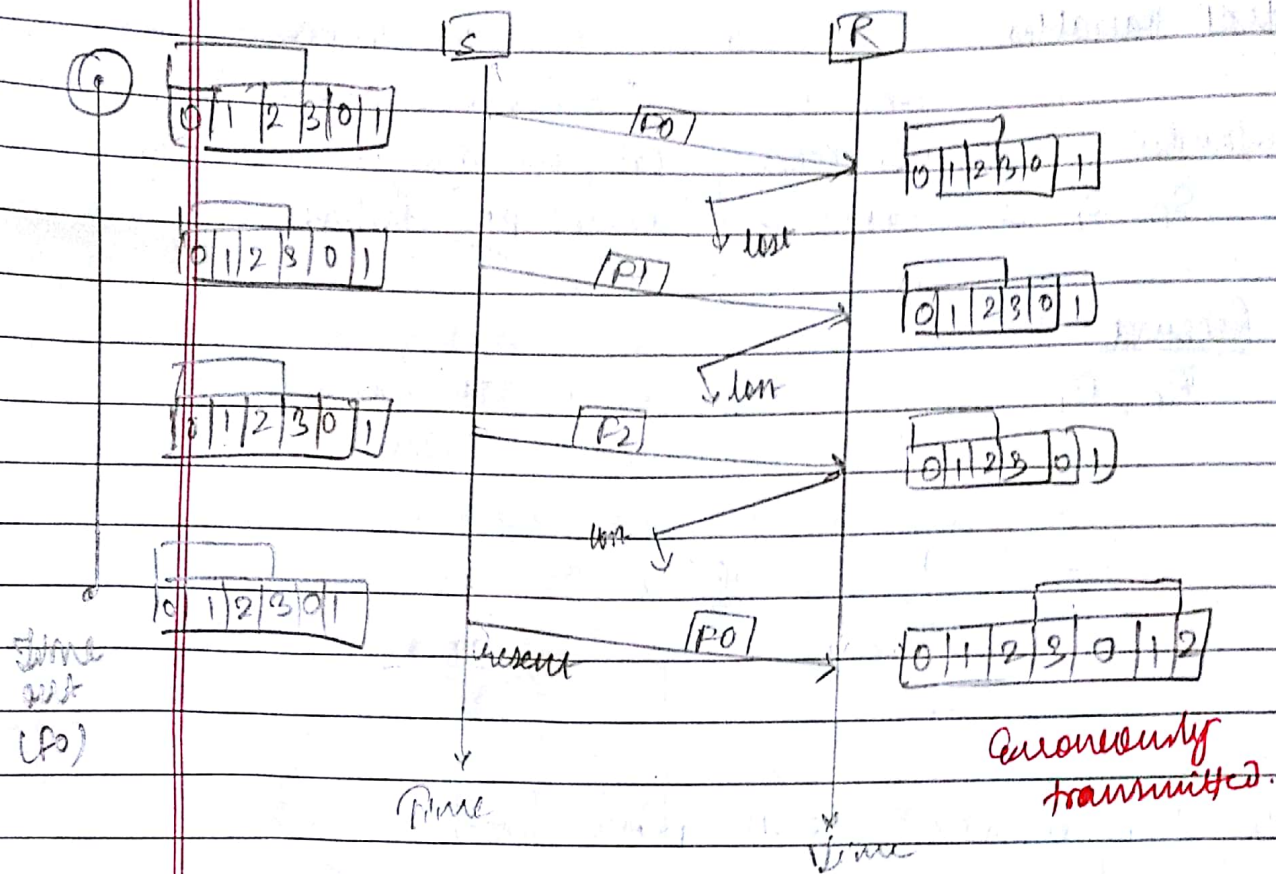 S R
0 1 2 3 0 1 F0 0 1 2 3 0 1
lost
0 1 2 3 0 1 F1 0 1 2 3 0 1
lost
0 1 2 3 0 1 F2 0 1 2 3 0 1
lost
0 1 2 3 0 1 F0 0 1 2 3 0 1 2
Time resent
out
(F0) Erroneously
transmitted.
Time
Time